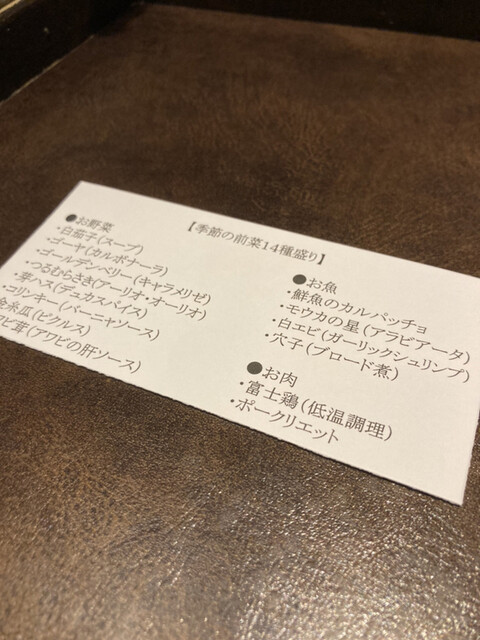 【季節の前菜14種盛り】
●お野菜
・白茄子(スープ)
・ゴーヤ(カルボナーラ)
・ゴールデンベリー(キャラメリゼ)
・つるむらさき(アーリオ・オーリオ)
・芽ハス(デュカスパイス)
・コリンキー(バーニャソース)
金糸瓜(ピクルス)
(アワビの肝ソース)
●お魚
・鮮魚のカルパッチョ
・モウカの星(アラビアータ)
・白エビ(ガーリックシュリンプ)
・穴子(ブロード煮)
●お肉
・富士鶏(低温調理)
・ポークリエット